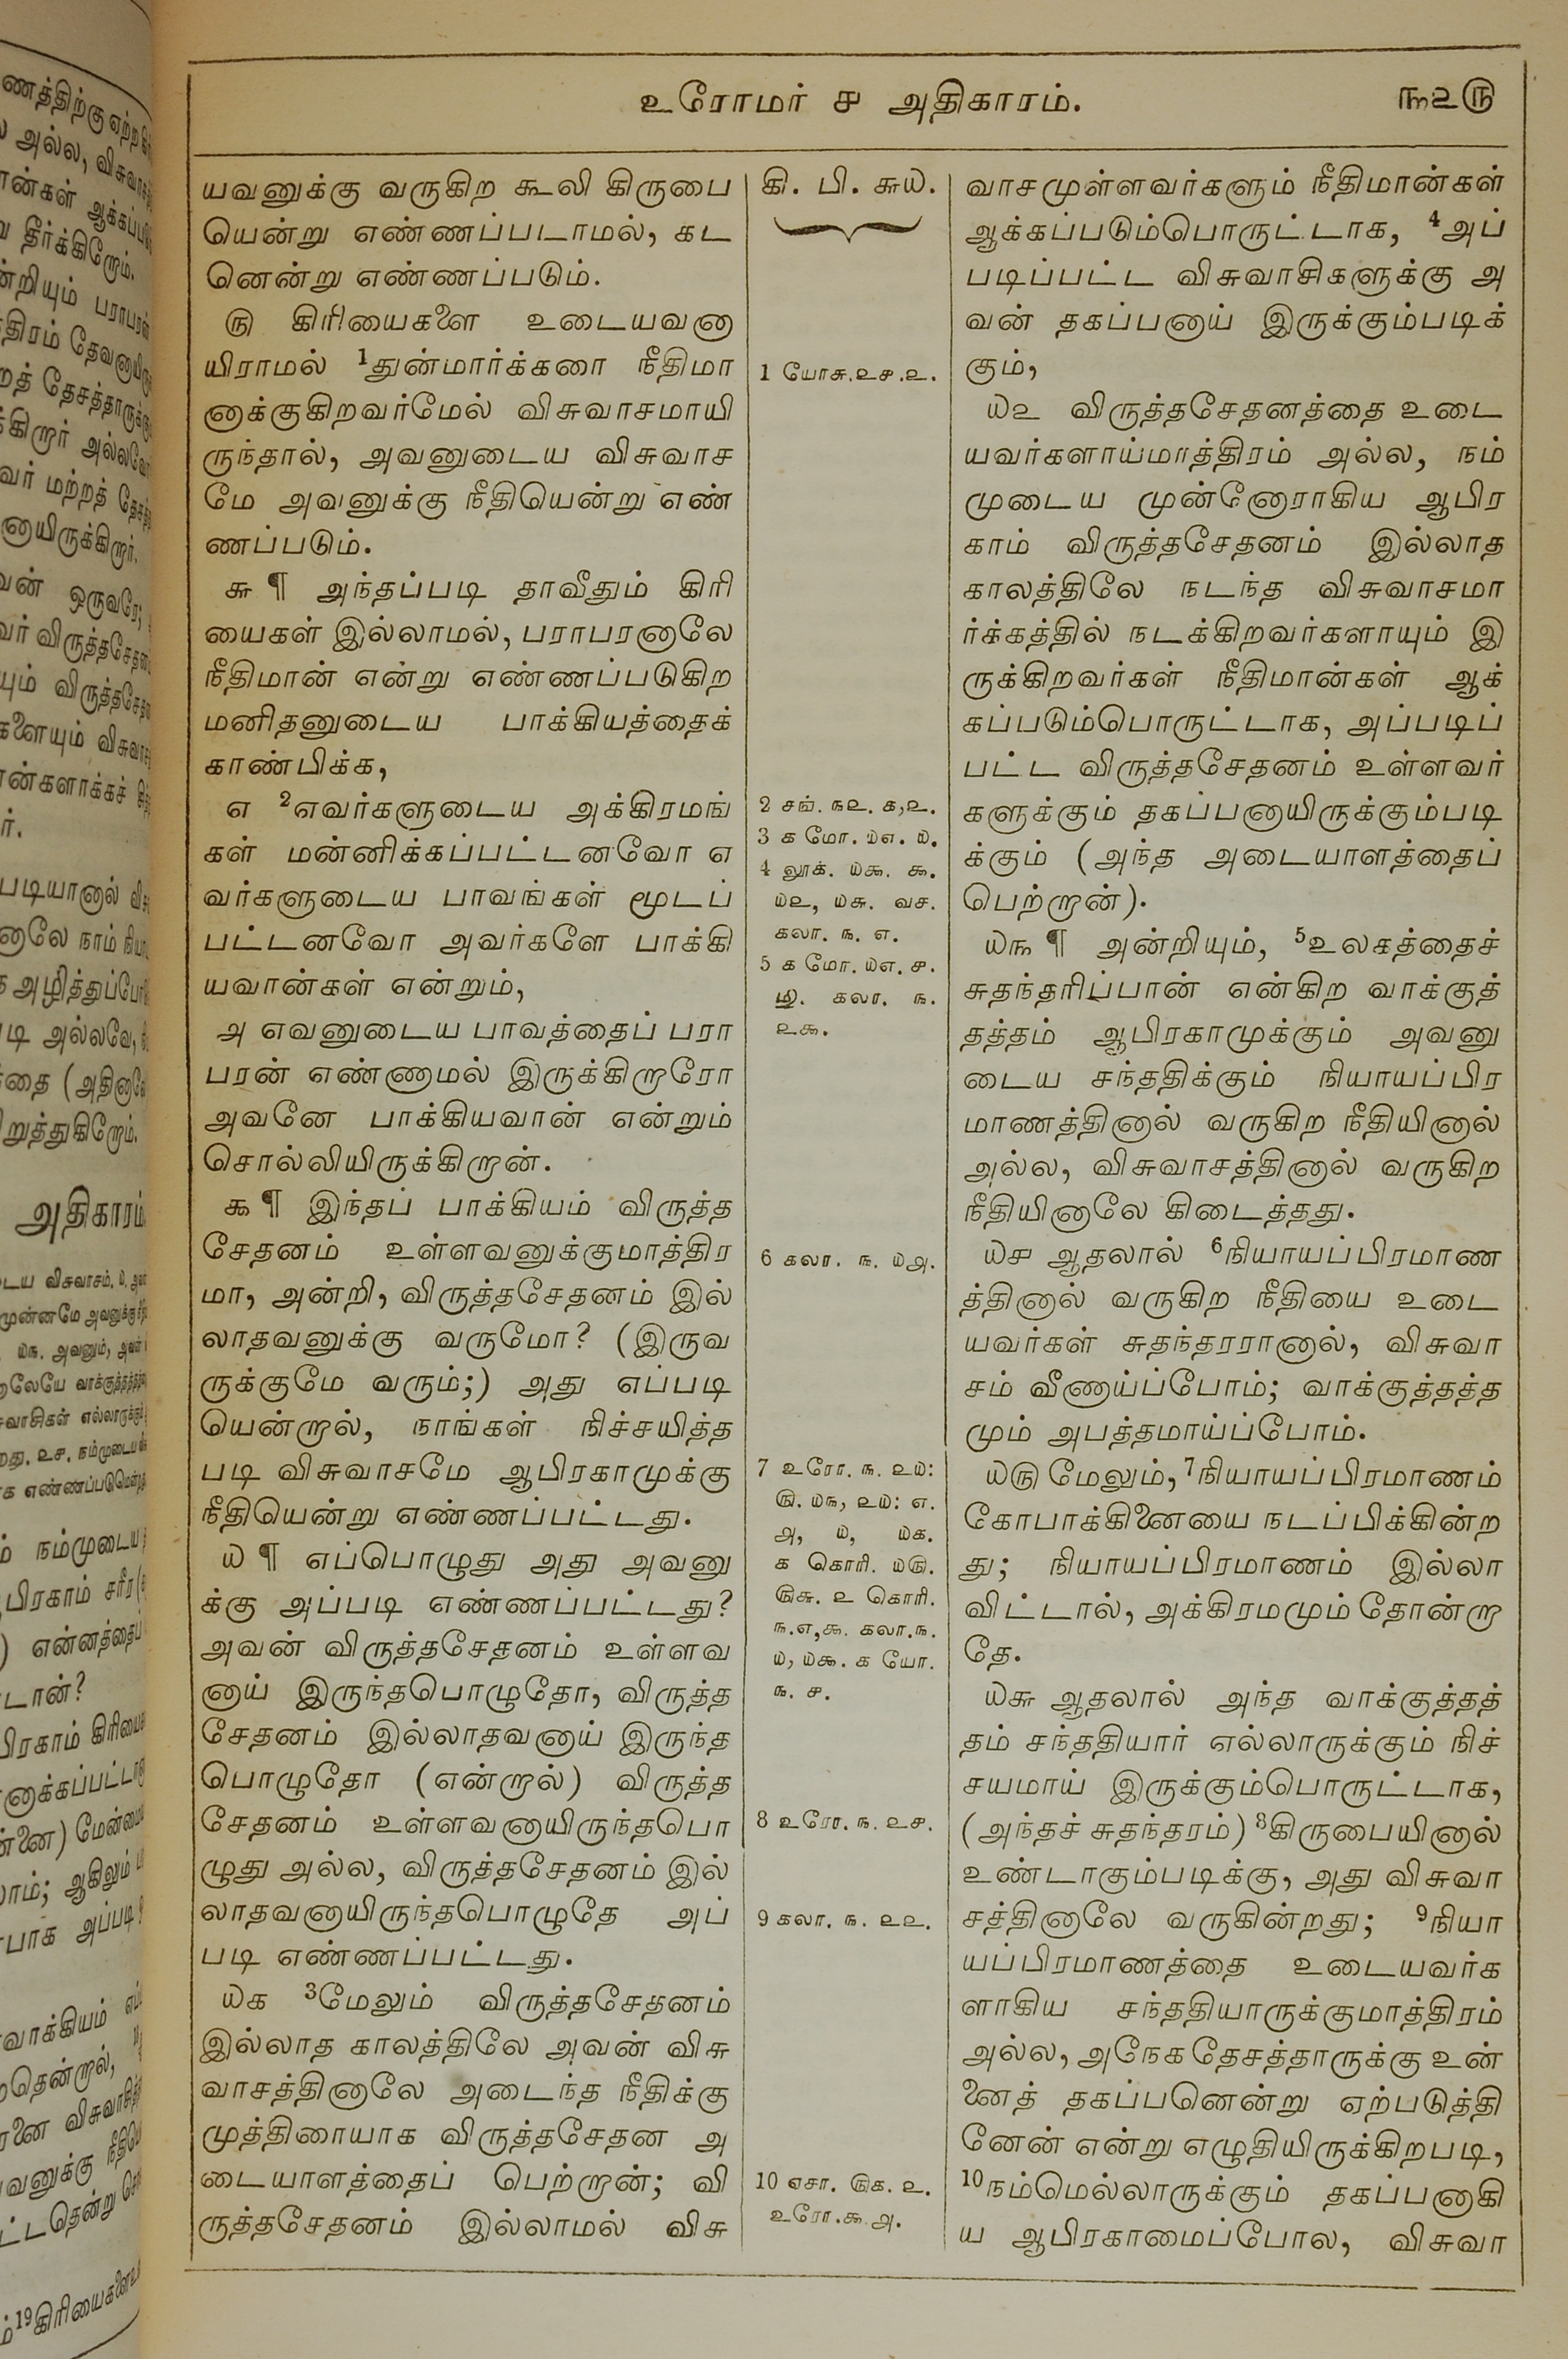 உரோமர் ௪ அதிகாரம்.
௩௨௫
யவனுக்கு வருகிற கூலி கிருபை
யென்று எண்ணப்படாமல், கட
னென்று எண்ணப்படும்.
௫ கிரியைகளை உடையவனா
யிராமல் 1துன்மார்க்கரை நீதிமா
னாக்குகிறவர்மேல் விசுவாசமாயி
ருந்தால், அவனுடைய விசுவாச
மே அவனுக்கு நீதியென்று எண்
ணப்படும்.
௬ ¶ அந்தப்படி தாவீதும் கிரி
யைகள் இல்லாமல், பராபரனாலே
நீதிமான் என்று எண்ணப்படுகிற
மனிதனுடைய பாக்கியத்தைக்
காண்பிக்க,
௭ 2எவர்களுடைய அக்கிரமங்
கள் மன்னிக்கப்பட்டனவோ எ
வர்களுடைய பாவங்கள் மூடப்
பட்டனவோ அவர்களே பாக்கி
யவான்கள் என்றும்,
௮ எவனுடைய பாவத்தைப் பரா
பரன் எண்ணாமல் இருக்கிறாரோ
அவனே பாக்கியவான் என்றும்
சொல்லியிருக்கிறான்.
௯ ¶ இந்தப் பாக்கியம் விருத்த
சேதனம் உள்ளவனுக்குமாத்திர
மா, அன்றி, விருத்தசேதனம் இல்
லாதவனுக்கு வருமோ? (இருவ
ருக்குமே வரும்;) அது எப்படி
யென்றால், நாங்கள் நிச்சயித்த
படி விசுவாசமே ஆபிரகாமுக்கு
நீதியென்று எண்ணப்பட்டது.
௰ ¶ எப்பொழுது அது அவனு
க்கு அப்படி எண்ணப்பட்டது?
அவன் விருத்தசேதனம் உள்ளவ
னாய் இருந்தபொழுதோ, விருத்த
சேதனம் இல்லாதவனாய் இருந்த
பொழுதோ (என்றால்) விருத்த
சேதனம் உள்ளவனாயிருந்தபொ
ழுது அல்ல, விருத்தசேதனம் இல்
லாதவனாயிருந்தபொழுதே அப்
படி எண்ணப்பட்டது.
௰௧ 3மேலும் விருத்தசேதனம்
இல்லாத காலத்திலே அவன் விசு
வாசத்தினாலே அடைந்த நீதிக்கு
முத்திரையாக விருத்தசேதன அ
டையாளத்தைப் பெற்றான்; வி
ருத்தசேதனம் இல்லாமல் விசு
கி. பி. ௬௰.
1 யோசு.௨௪.௨.
2 சங். ௩௨. ௧,௨.
3 ௧ மோ. ௰௭. ௰.
4 லூக். ௰௯. ௯.
௰௨, ௰௬. வச.
கலா. ௩. ௭.
5 ௧ மோ. ௰௭. ௪.
௴. கலா. ௩.
௨௯.
6 கலா. ௩. ௰௮.
7 உரோ. ௩. ௨௰:
௫. ௰௩, ௨௰: ௭.
௮, ௰, ௰௧.
௧ கொரி. ௰௫.
௫௬. ௨ கொரி.
௩.௭,௯. கலா.௩.
௰, ௰௯. ௧ யோ.
௩. ௪.
8 உரோ. ௩. ௨௪.
9 கலா. ௩. ௨௨.
10 ஏசா. ௫௧. ௨.
உரோ.௯.௮.
வாசமுள்ளவர்களும் நீதிமான்கள்
ஆக்கப்படும்பொருட்டாக, 4அப்
படிப்பட்ட விசுவாசிகளுக்கு அ
வன் தகப்பனாய் இருக்கும்படிக்
கும்,
௰௨ விருத்தசேதனத்தை உடை
யவர்களாய்மாத்திரம் அல்ல, நம்
முடைய முன்னோராகிய ஆபிர
காம் விருத்தசேதனம் இல்லாத
காலத்திலே நடந்த விசுவாசமா
ர்க்கத்தில் நடக்கிறவர்களாயும் இ
ருக்கிறவர்கள் நீதிமான்கள் ஆக்
கப்படும்பொருட்டாக, அப்படிப்
பட்ட விருத்தசேதனம் உள்ளவர்
களுக்கும் தகப்பனாயிருக்கும்படி
க்கும் (அந்த அடையாளத்தைப்
பெற்றான்).
௰௩ ¶ அன்றியும், 5உலகத்தைச்
சுதந்தரிப்பான் என்கிற வாக்குத்
தத்தம் ஆபிரகாமுக்கும் அவனு
டைய சந்ததிக்கும் நியாயப்பிர
மாணத்தினால் வருகிற நீதியினால்
அல்ல, விசுவாசத்தினால் வருகிற
நீதியினாலே கிடைத்தது.
௰௪ ஆதலால் 6நியாயப்பிரமாண
த்தினால் வருகிற நீதியை உடை
யவர்கள் சுதந்தரரானால், விசுவா
சம் வீணாய்ப்போம்; வாக்குத்தத்த
மும் அபத்தமாய்ப்போம்.
௰௫ மேலும், 7நியாயப்பிரமாணம்
கோபாக்கினையை நடப்பிக்கின்ற
து; நியாயப்பிரமாணம் இல்லா
விட்டால், அக்கிரமமும் தோன்றா
தே.
௰௬ ஆதலால் அந்த வாக்குத்தத்
தம் சந்ததியார் எல்லாருக்கும் நிச்
சயமாய் இருக்கும்பொருட்டாக,
(அந்தச் சுதந்தரம்) 8கிருபையினால்
உண்டாகும்படிக்கு, அது விசுவா
சத்தினாலே வருகின்றது; 9நியா
யப்பிரமாணத்தை உடையவர்க
ளாகிய சந்ததியாருக்குமாத்திரம்
அல்ல, அநேக தேசத்தாருக்கு உன்
னைத் தகப்பனென்று ஏற்படுத்தி
னேன் என்று எழுதியிருக்கிறபடி,
10நம்மெல்லாருக்கும் தகப்பனாகி
ய ஆபிரகாமைப்போல, விசுவா